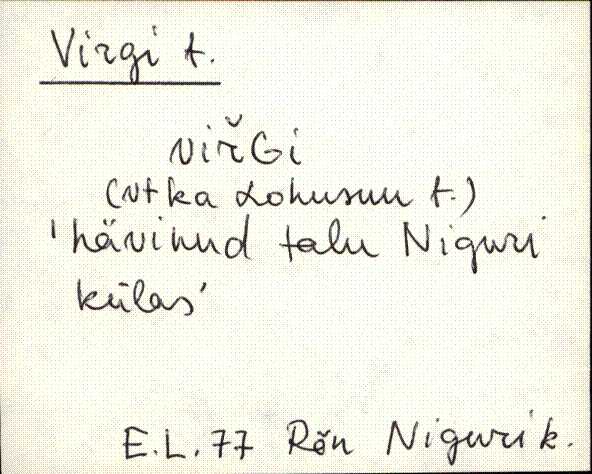 Virgi t.
viřGi
(vt ka Lohusuu t.)
'hävinud talu Niguri
külas'
E.L. 77 Rõn Niguri k.